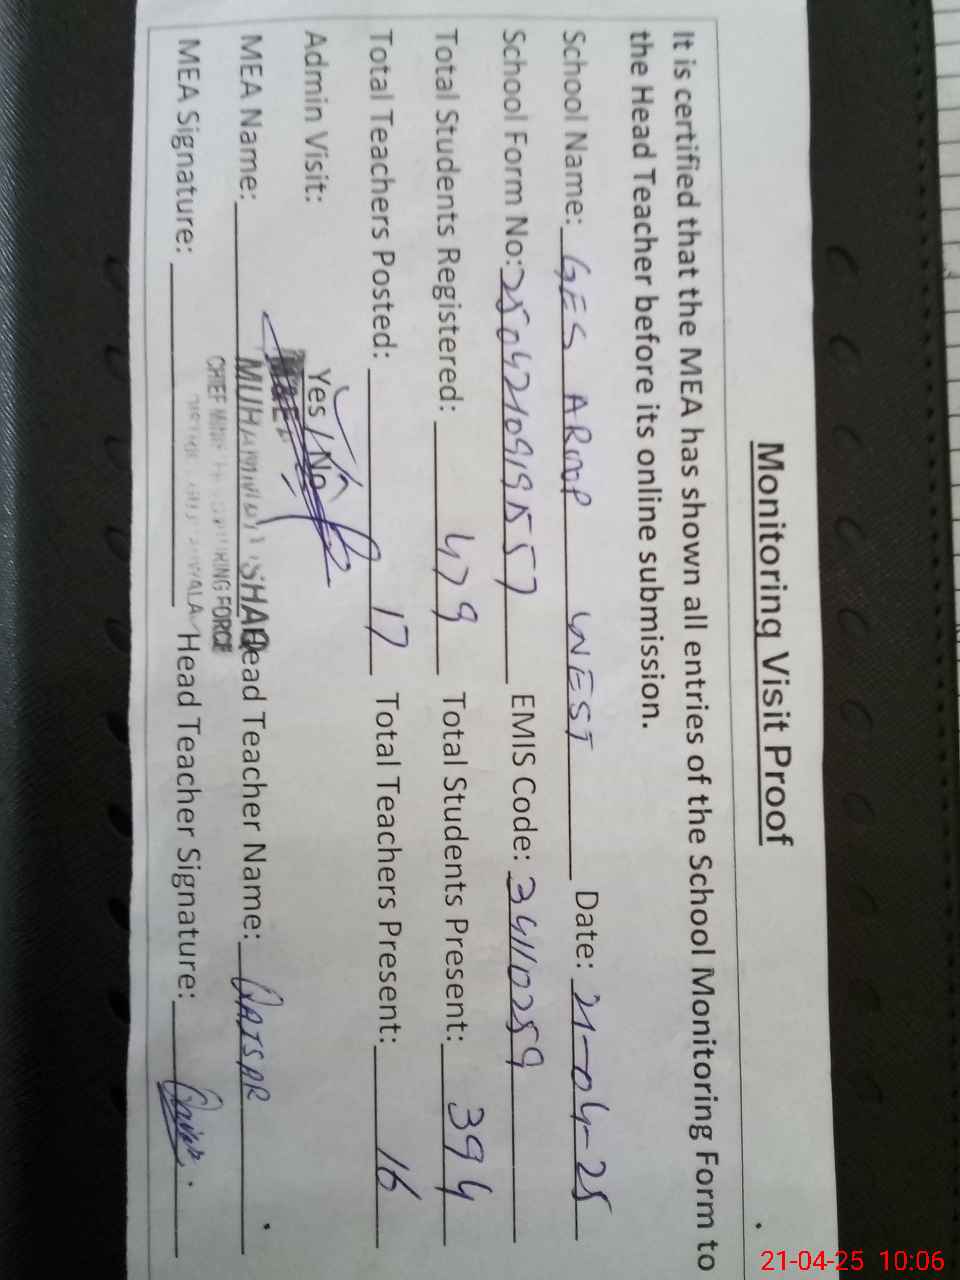 Monitoring Visit Proof
It is certified that the MEA has shown all entries of the School Monitoring Form to
the Head Teacher before its online submission.
School Name: GES AROOP WEST Date: 21-04-25
School Form No: 2504210919557 EMIS Code: 34110259
Total Students Registered: 479 Total Students Present: 394
Total Teachers Posted: 17 Total Teachers Present: 16
Admin Visit: Yes / No
MEA Name: MUHAMMAD ISHAQ Head Teacher Name: QAISAR
CHIEF MONITORING FORCE
MEA Signature: Head Teacher Signature: Qaisar
21-04-25 10:06